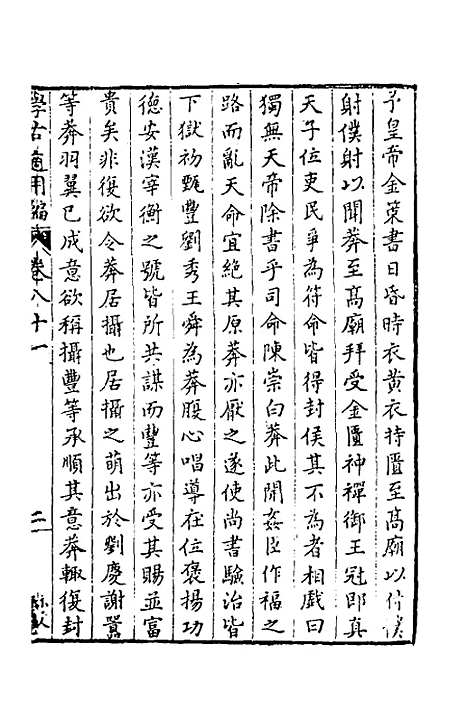 予皇帝金策書日昏時衣黄衣持匱至髙廟以付僕
射僕射以聞莽至髙廟拜受金匱神禪御王冠即真
天子位吏民爭為符命皆得封侯其不為者相戲曰
獨無天帝除書乎司命陳崇白莽此開姦臣作福之
路而亂天命宜絕其原莽亦厭之遂使尚書驗治皆
下獄初甄豐劉秀王舜為莽腹心唱導在位褒揚功
德安漢宰衡之號皆所共謀而豐等亦受其賜並富
貴矣非復欲令莽居攝也居攝之萌出於劉慶謝囂
等莽羽翼已成意欲稱攝豐等承順其意莽輒復封
學古適用編 卷八十一 二